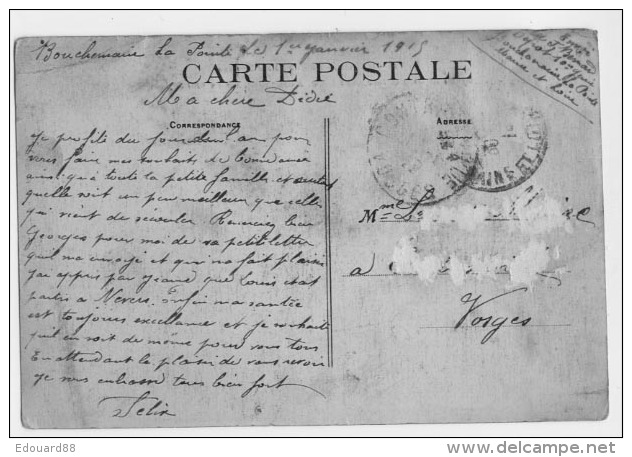 Bouchemaine La Pointe le 1er janvier 1915
CARTE POSTALE
Ma chère Dédée
CORRESPONDANCE
ADRESSE
Je profite du jour de l'an pour
vous faire mes souhaits de bonne année
ainsi que à toute la petite famille et surtout
quelle soit un peu meilleure que celle
qui vient de s'écouler Remercie bien
Georges pour moi de sa petite lettre
qu'il ma envoyé et qui ma fait plaisir
J'ai appris par Jeanne que Louis était
partis a Nevers enfin ma santée
est toujours excellante et je souhaite
qu'il en soit de même pour vous tous
En attendant le plaisir de vous revoir
je vous embrasse tous bien fort
Felix
Mme
a
Vosges
Maine et Loire
Edouard88
www.delcampe.net